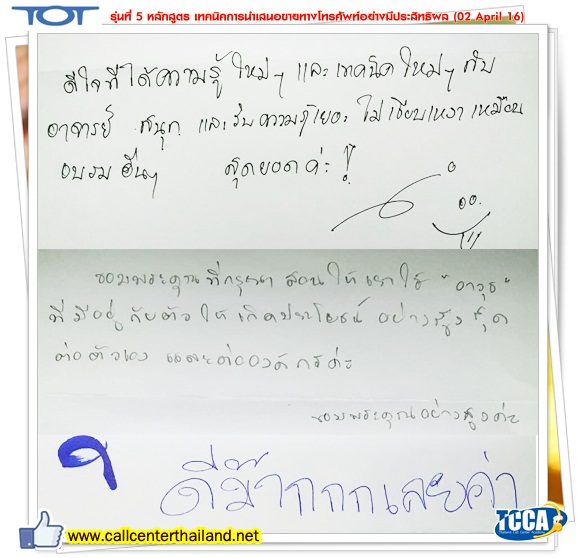 TOT รุ่นที่ 5 หลักสูตร เทคนิคการนำเสนอขายทางโทรศัพท์อย่างมีประสิทธิผล (02 April 16)
ดีใจที่ได้ความรู้ใหม่ๆ และเทคนิคใหม่ๆ กับ
อาจารย์ สนุก และรับความรู้เยอะ ไม่เงียบเหงาเหมือน
อบรมอื่นๆ สุดยอดค่ะ!
ขอบพระคุณที่กรุณาสอนให้เราใช้ "อาวุธ"
ที่มีอยู่กับตัวให้เกิดประโยชน์อย่างสูงสุด
ต่อตัวเอง และต่อองค์กรค่ะ
ขอบพระคุณอย่างสูงค่ะ
ดีม๊ากกกกเลยค่า
www.callcenterthailand.net
TCCA